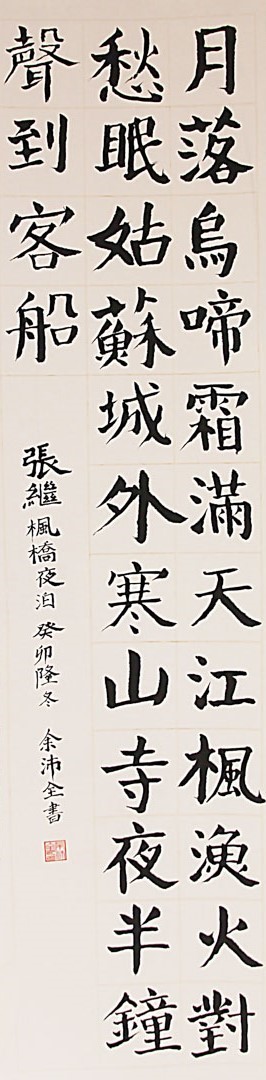 月落烏啼霜滿天江楓漁火對
愁眠姑蘇城外寒山寺夜半鐘
聲到客船
張繼楓橋夜泊 癸卯隆冬 余沛全書